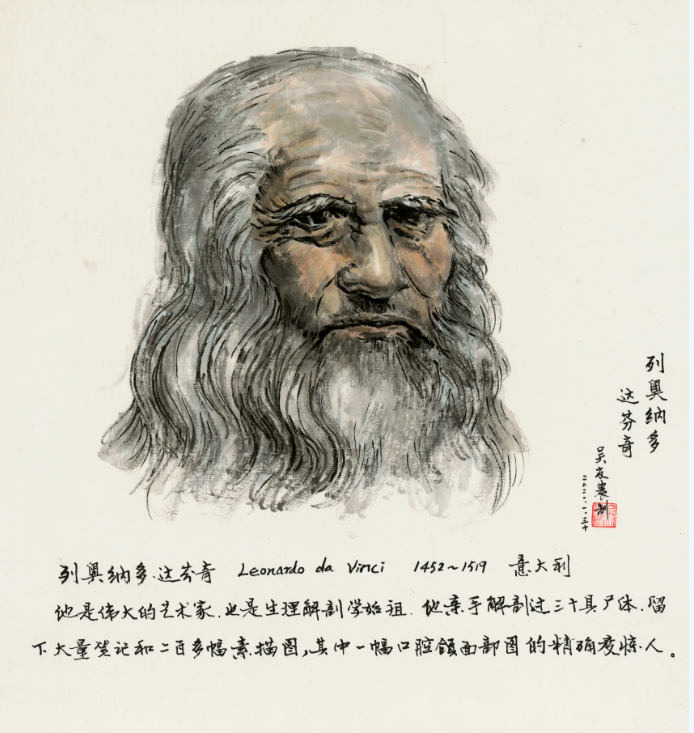 列奥纳多
达芬奇
二〇二一.一.三十
列奥纳多·达芬奇 Leonardo da Vinci 1452~1519 意大利
他是伟大的艺术家.也是生理解剖学始祖.他亲手解剖过三十具尸体.留
下大量笔记和二百多幅素描图,其中一幅口腔颌面部图的精确度惊人。